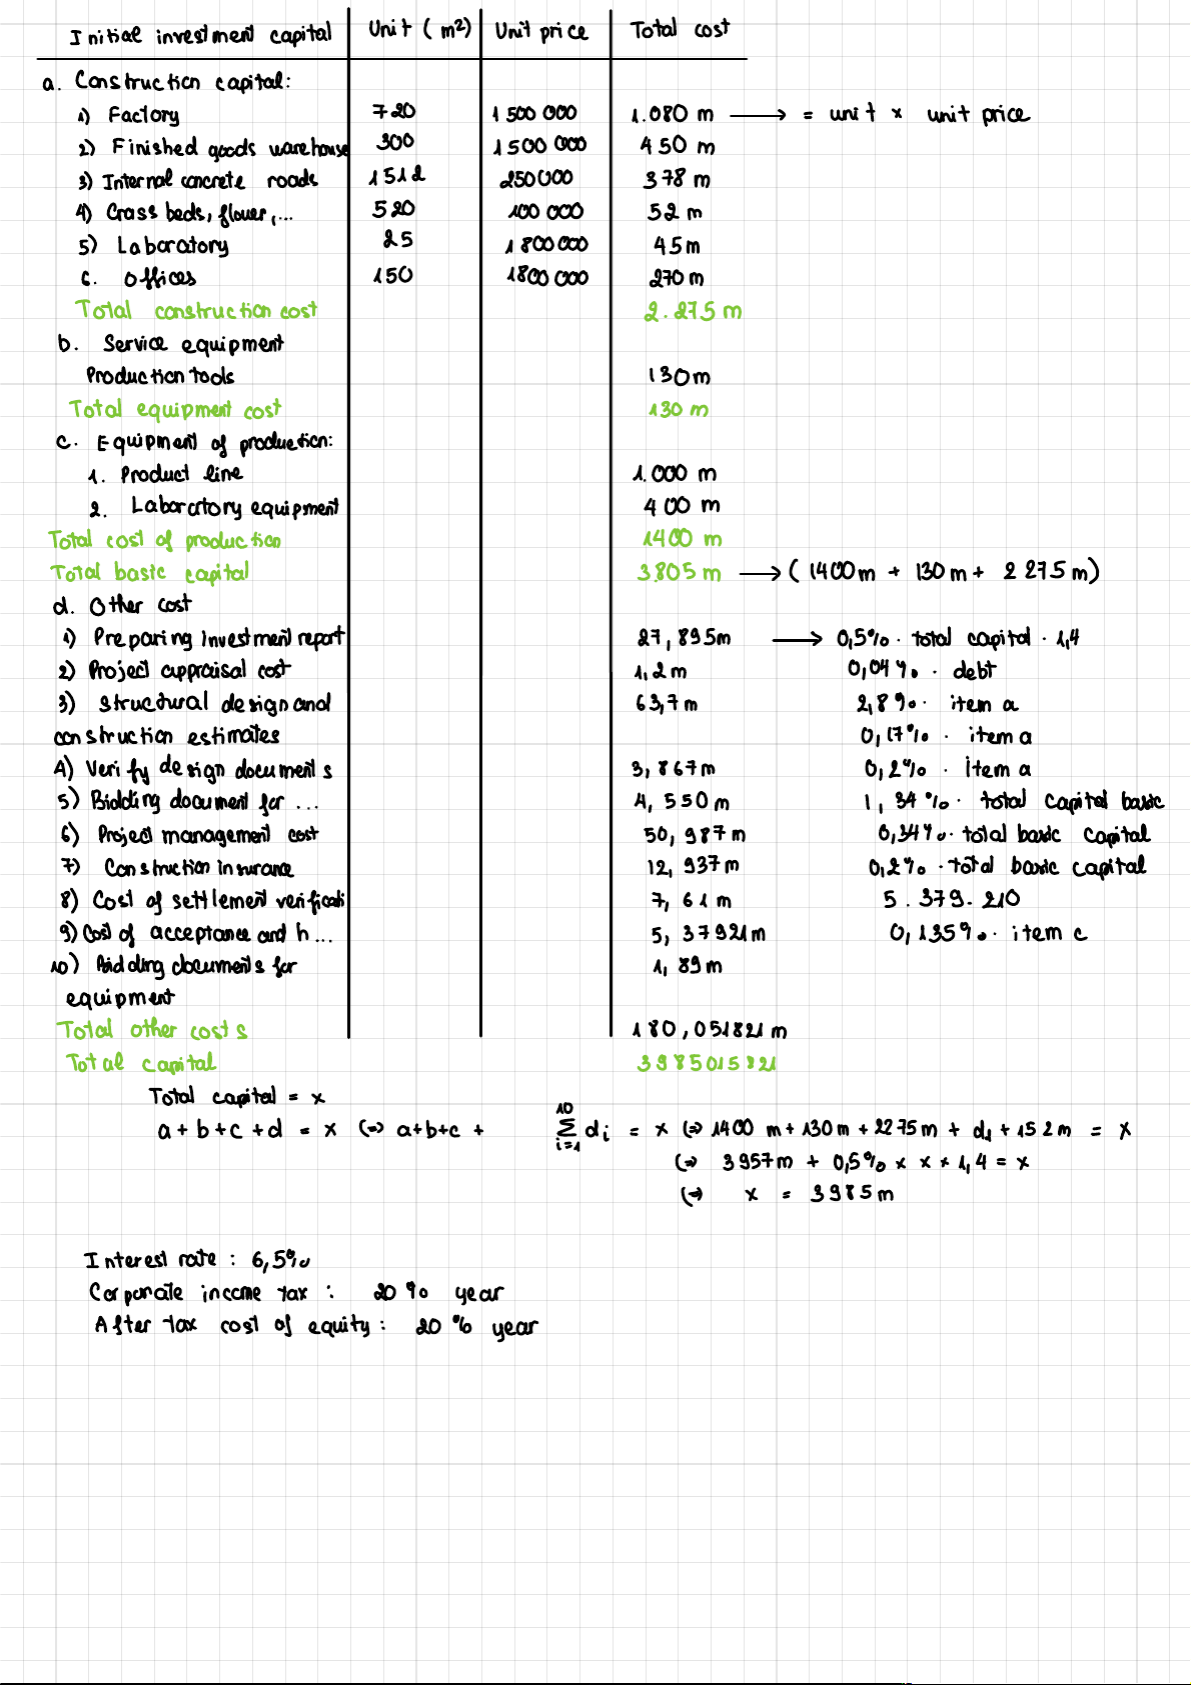 Initial investment capital Unit (m²) Unit price Total cost
a. Construction capital:
1) Factory 720 1 500 000 1.080 m ⟶ = unit x unit price
2) Finished goods warehouse 300 1 500 000 450 m
3) Internal concrete roads 1512 250000 378 m
4) Grass beds, flower,... 520 100 000 52 m
5) Laboratory 25 1 800000 45m
6. Offices 150 1800 000 270 m
Total construction cost 2.275 m
b. Service equipment
Production tools 130m
Total equipment cost 130 m
c. Equipment of production:
1. Product line 1.000 m
2. Laboratory equipment 400 m
Total cost of production 1400 m
Total basic capital 3.805 m ⟶ ( 1400m + 130m + 2 275m)
d. Other cost
1) Preparing investment report 27,895m ⟶ 0,5% . total capital . 1,4
2) Project appraisal cost 1,2m 0,04% . debt
3) Structural design and 63,7m 2,8% . item a
construction estimates 0,17% . item a
4) Verify design documents 3,867m 0,2% . item a
5) Bidding document for ... 4,550m 1,34%. total capital basic
6) Project management cost 50,987m 0,34%. total basic capital
7) Construction insurance 12,937m 0,2% . total basic capital
8) Cost of settlement verificati 7,61 m 5.379.210
9) Cost of acceptance and h... 5,37921m 0,135%. item c
10) Bidding documents for 1,89m
equipment
Total other costs 180,051821 m
Total capital 3985015821
Total capital = x
a + b + c + d = x (=> a+b+c + 10 Σ i=1 di = x (=> 1400 m + 130m + 2275m + d1 + 152m = x
(=> 3957m + 0,5% x x x 1,4 = x
(=> x = 3985m
Interest rate : 6,5%
Corporate income tax : 20% year
After tax cost of equity : 20% year